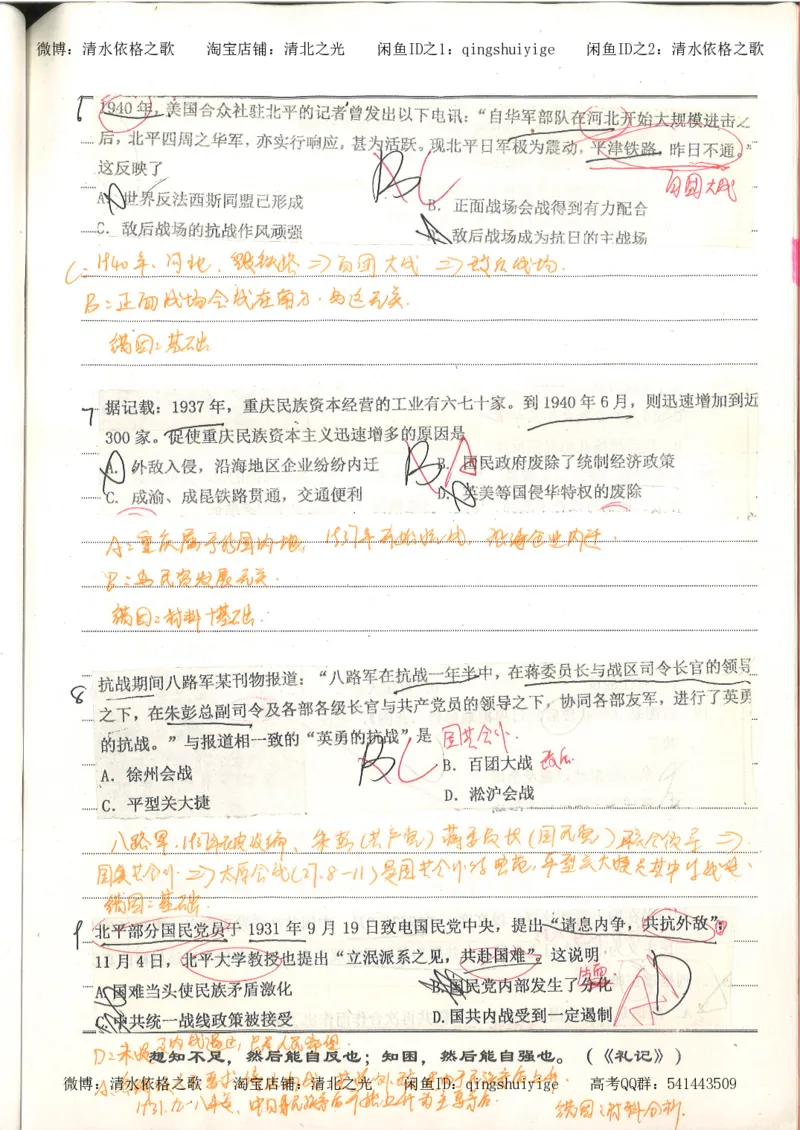 微博：清水依格之歌 淘宝店铺：清北之光 闲鱼ID之1：qingshuiyige 闲鱼ID之2：清水依格之歌
1940年，美国合众社驻北平的记者曾发出以下电讯：“自华军部队在河北开始大规模进击之
后，北平四周之华军，亦实行响应，甚为活跃。现北平日军极为震动，平津铁路，昨日不通。”
这反映了
B C
百团大战
A. 世界反法西斯同盟已形成 B. 正面战场会战得到有力配合
C. 敌后战场的抗战作风顽强 D. 敌后战场成为抗日的主战场
C: 1940年、河北、毁铁路⇒百团大战⇒敌后战场.
B: 正面战场会战在南方.与这无关.
错因: 基础
7 据记载：1937年，重庆民族资本经营的工业有六七十家。到1940年6月，则迅速增加到近
300家。促使重庆民族资本主义迅速增多的原因是
B A
A. 外敌入侵，沿海地区企业纷纷内迁 B. 国民政府废除了统制经济政策
C. 成渝、成昆铁路贯通，交通便利 D. 英美等国侵华特权的废除
A: 重庆属于我国内地, 1937年开始抗战, 沿海企业内迁.
B: 与民资发展无关.
错因: 材料+基础.
8 抗战期间八路军某刊物报道：“八路军在抗战一年半中，在蒋委员长与战区司令长官的领导
之下，在朱彭总副司令及各部各级长官与共产党员的领导之下，协同各部友军，进行了英勇
的抗战。”与报道相一致的“英勇的抗战”是 国共合作.
B C
A. 徐州会战 B. 百团大战 敌后
C. 平型关大捷 D. 淞沪会战
八路军, 1937年被改编、朱彭(共产党) 蒋委员长(国民党) 联合领导⇒
国共合作.⇒太原会战(37.8-11)是国共合作的典范,平型关大捷是其中
错因: 基础.
9 北平部分国民党员于1931年9月19日致电国民党中央，提出“请息内争，共抗外敌”；
11月4日，北平大学教授也提出“立泯派系之见，共赴国难”。这说明
A D
A.国难当头使民族矛盾激化 B.国民党内部发生了分化
C.中共统一战线政策被接受 D.国共内战受到一定遏制
想知不足，然后能自反也；知困，然后能自强也。（《礼记》）
微博：清水依格之歌 淘宝店铺：清北之光 闲鱼ID：qingshuiyige 高考QQ群：541443509
错因: 材料分析.